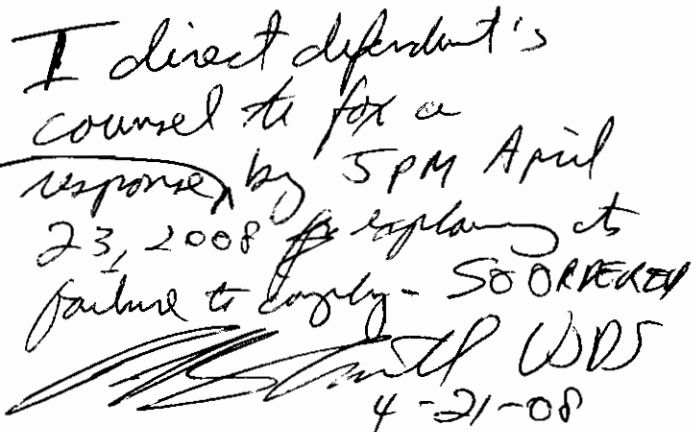 I direct defendant's
counsel to fax a
response, by 5PM April
23, 2008 explaining its
failure to comply - SO ORDERED
USDJ
4-21-08